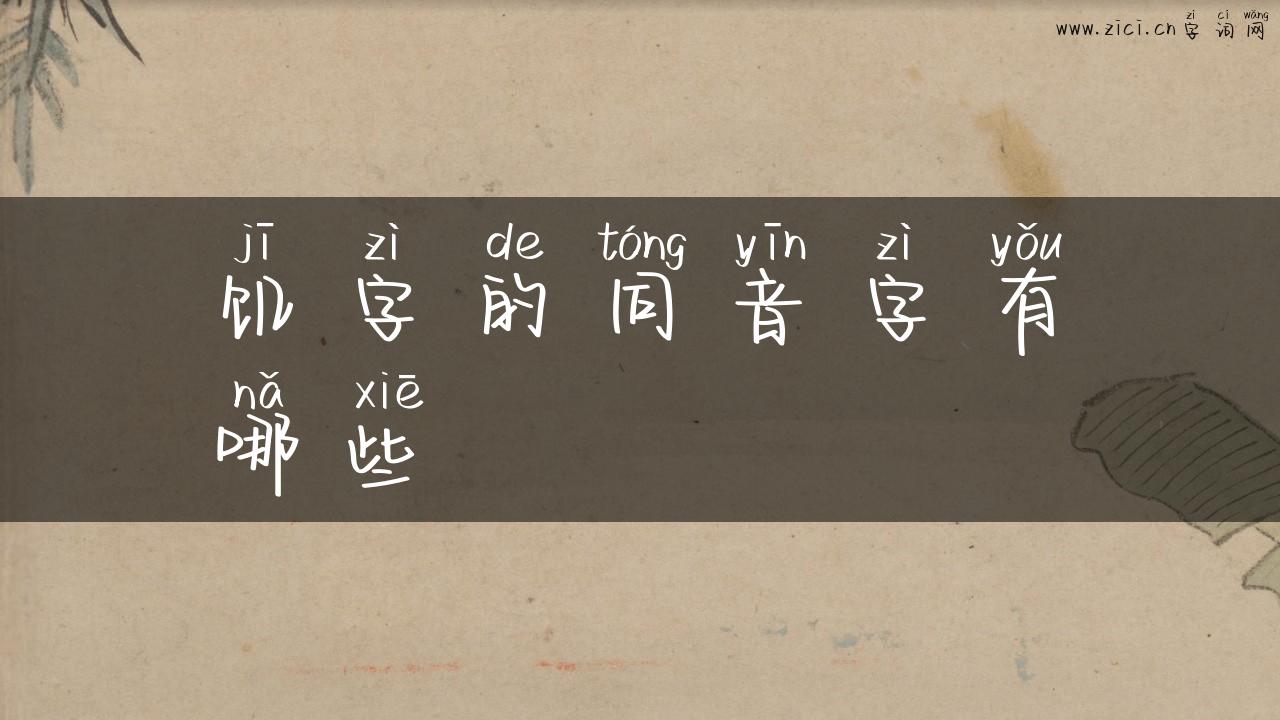 zì cí wǎng
www.zici.cn 字 词 网
jī zì de tóng yīn zì yǒu
饥 字 的 同 音 字 有
nǎ xiē
哪 些